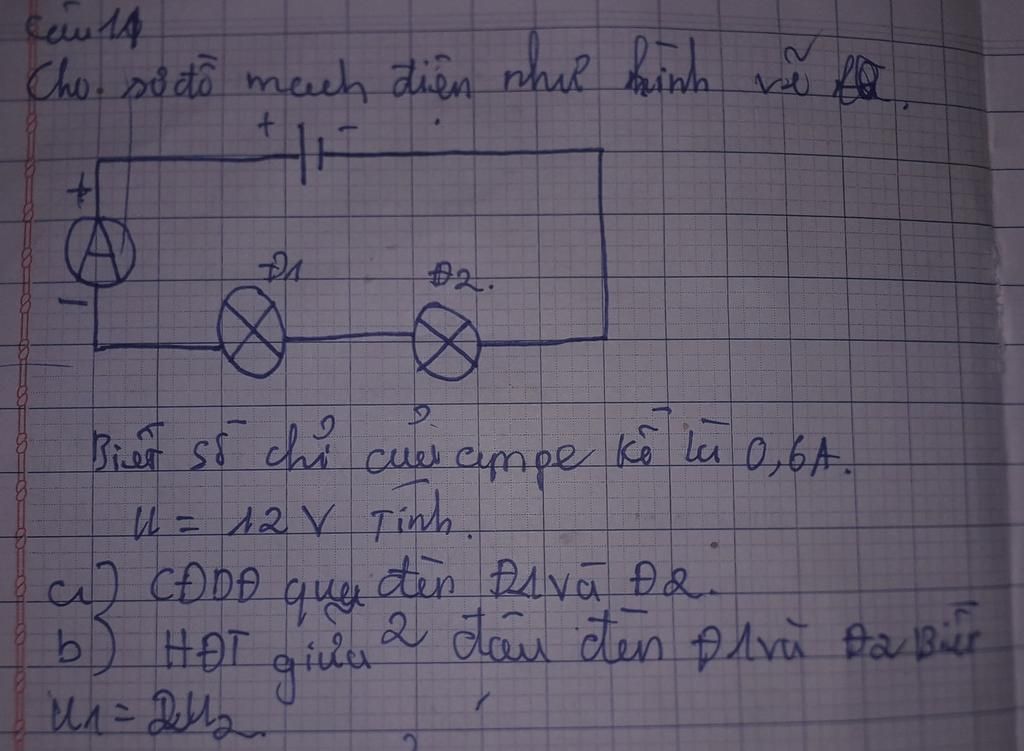 Câu 14
Cho sơ đồ mạch điện như hình vẽ
+ -
+
A
-
Đ1 Đ2.
Biết số chỉ của ampe kế là 0,6A.
U = 12 V Tính.
a) CĐDĐ qua đèn Đ1 và Đ2.
b) HĐT giữa 2 đầu đèn Đ1 và Đ2 Biết
U1 = 2U2.